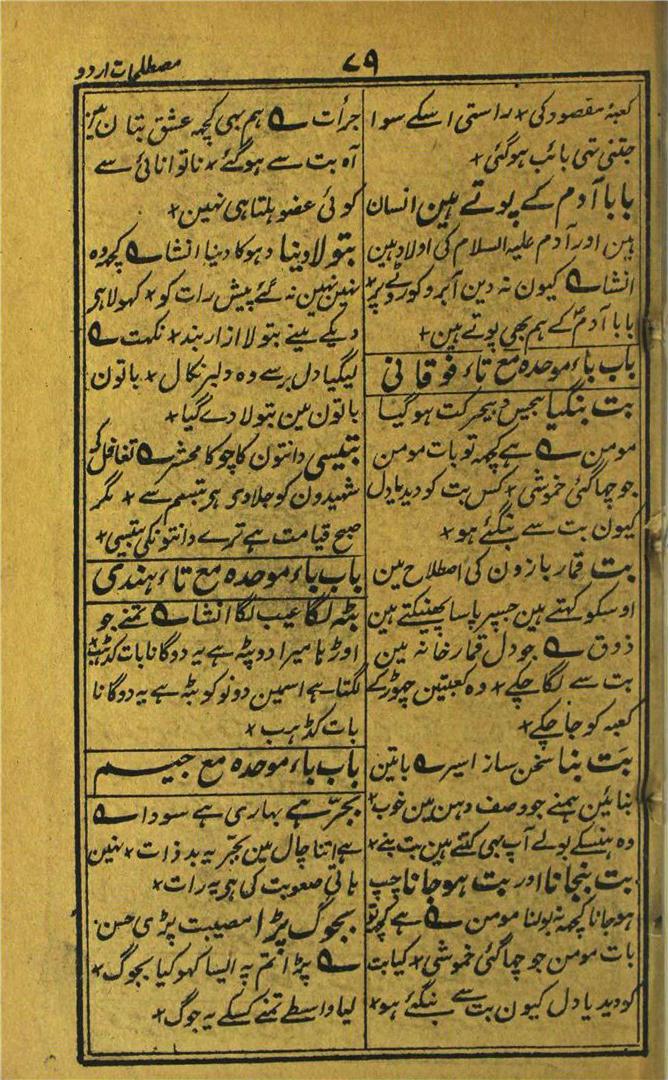 مصطلحات اردو
۷۹
کعبۂ مقصود کی × راستی اسکے سوا
جتنی تہی بائب ہوگئی ×
بابا آدم کے پوتے ہین انسان
ہین اور آدم علیہ السلام کی اولاد ہین
انشا ؎ کیون نہ دین آبرو کو رتبے پر ×
بابا آدمؑ کے ہم بھی پوتے ہین ×
باب باء موحدہ مع تاء فوقانی
بت بنگیا بیحس و بیحرکت ہوگیا
مومن ؎ ہے کچہہ تو بات مومن
جو چھاگئی خموشی × کس بت کو دیدیا دل
کیون بت سے بنگئے ہو ×
بت قمار بازون کی اصطلاح مین
اوسکو کہتے ہین جسپر پاسا پھینکتے ہین
ذوق ؎ جو دل قمار خانہ مین
بت سے لگا چکے × وہ کعبتین چھوڑ کے
کعبہ کو جا چکے ×
بَت بنا سخن ساز اسیر ؎ باتین
بنائین ہمنے جو وصف دہن مین خوب ×
وہ ہنسکے بولے آپ بہی کتنے ہین بت بنے ×
بت بنجانا اور بت ہوجانا چپ
ہوجانا کچہہ نہ بولنا مومن ؎ ہے کچہہ تو
بات مومن جو چھاگئی خموشی × کیا بت
کو دیدیا دل کیون بت سے بنگئے ہو ×
جرأت ؎ ہم بہی کچہہ عشق بتان مین
آہ بت سے ہوگئے × ناتوانائی سے
کوئی عضو ہلتا ہی نہین ×
بتولا دینا دہوکا دینا انشا ؎ کچہہ وہ
نہین نہین نہ گئے پیش رات کو × کہولا ہی
دیکے مینے بتولا ازار بند × نکہت ؎
لیگیا دل برسے وہ دلبر نکال × باتون
باتون مین بتولا دے گیا ×
بتیسی دانتون کا چوکا محشر ؎ تغافل کو
شہیدون کو جلادی ہر تبسم سے × مگر
صبح قیامت ہے ترے دانتونکی بتیسی ×
باب باء موحدہ مع تاء ہندی
بٹہ لگا عیب لگا انشا ؎ تمنے جو
اوڑہا میرا دوپٹہ ہے یہ دوگانا بات کڈہب
لگتا ہے اسمین دونو کو بٹہ ہے یہ دوگانا
بات کڈہب ×
باب باء موحدہ مع جیم
بجرّ ہے بہاری ہے سودا ؎
ہے اتنا چال مین بجرّ یہ بد ذات × نہین
ہاتی صعوبت کی ہو یہ رات ×
بجوگ پڑا مصیبت پڑی حسن
؎ پڑا تم پہ ایسا کہو کیا بجوگ ×
لیا واسطے تمنے کسکے یہ جوگ ×